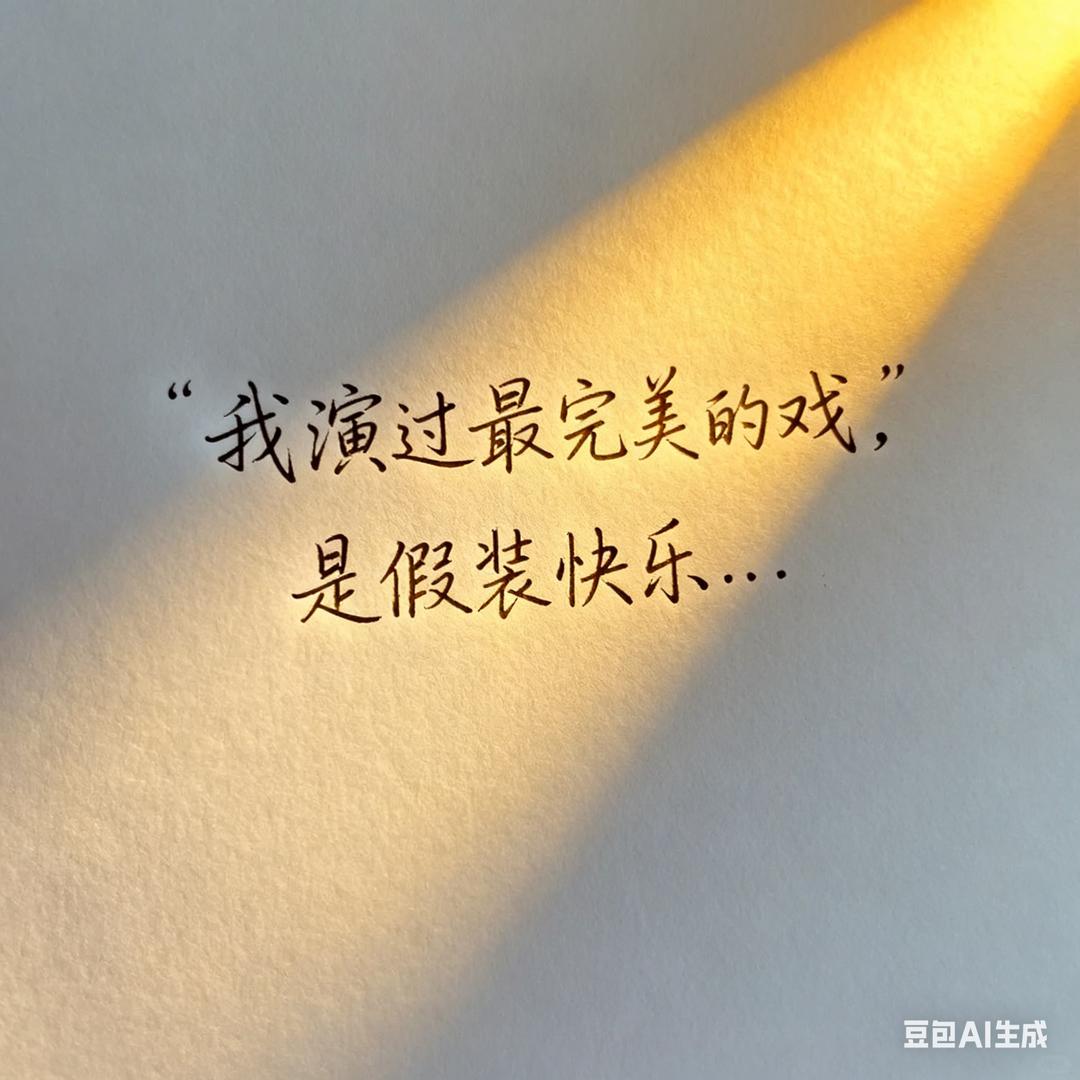 “我演过最完美的戏，”
是假装快乐...
豆包AI生成